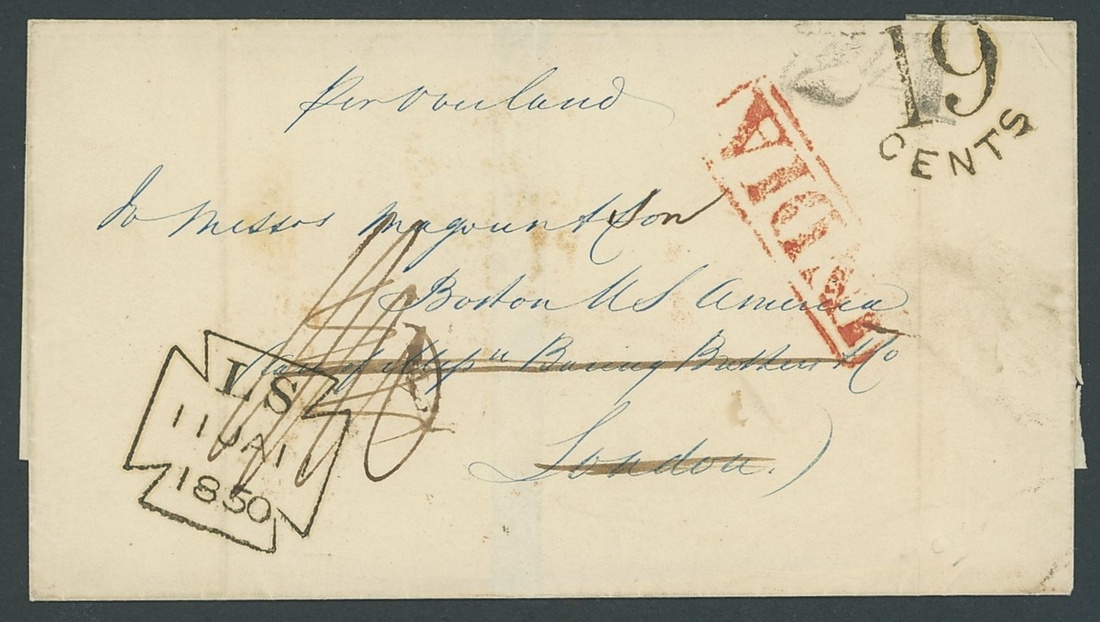 19
CENTS
Per Overland
INDIA
To Messrs Magoun & Son
Boston U S America
Care of Messrs Baring Brothers & Co
London.)
LS
11 JA 1
1850